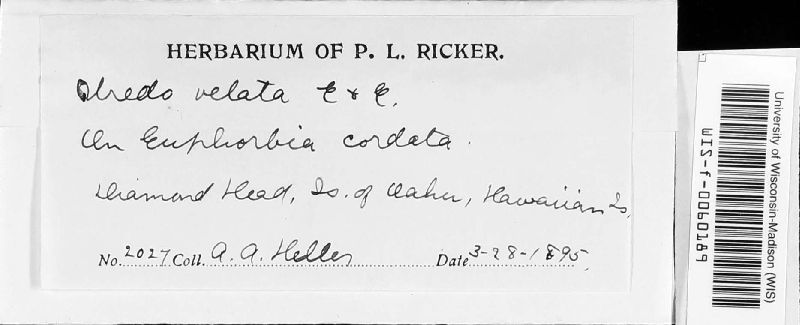 HERBARIUM OF P. L. RICKER.
Uredo velata E & E.
On Euphorbia cordata.
Diamond Head, Is. of Oahu, Hawaiian Is,
No. 2027 Coll. A. A. Heller Date 3-28-1895.
University of Wisconsin-Madison (WIS)
WIS-f-0060189